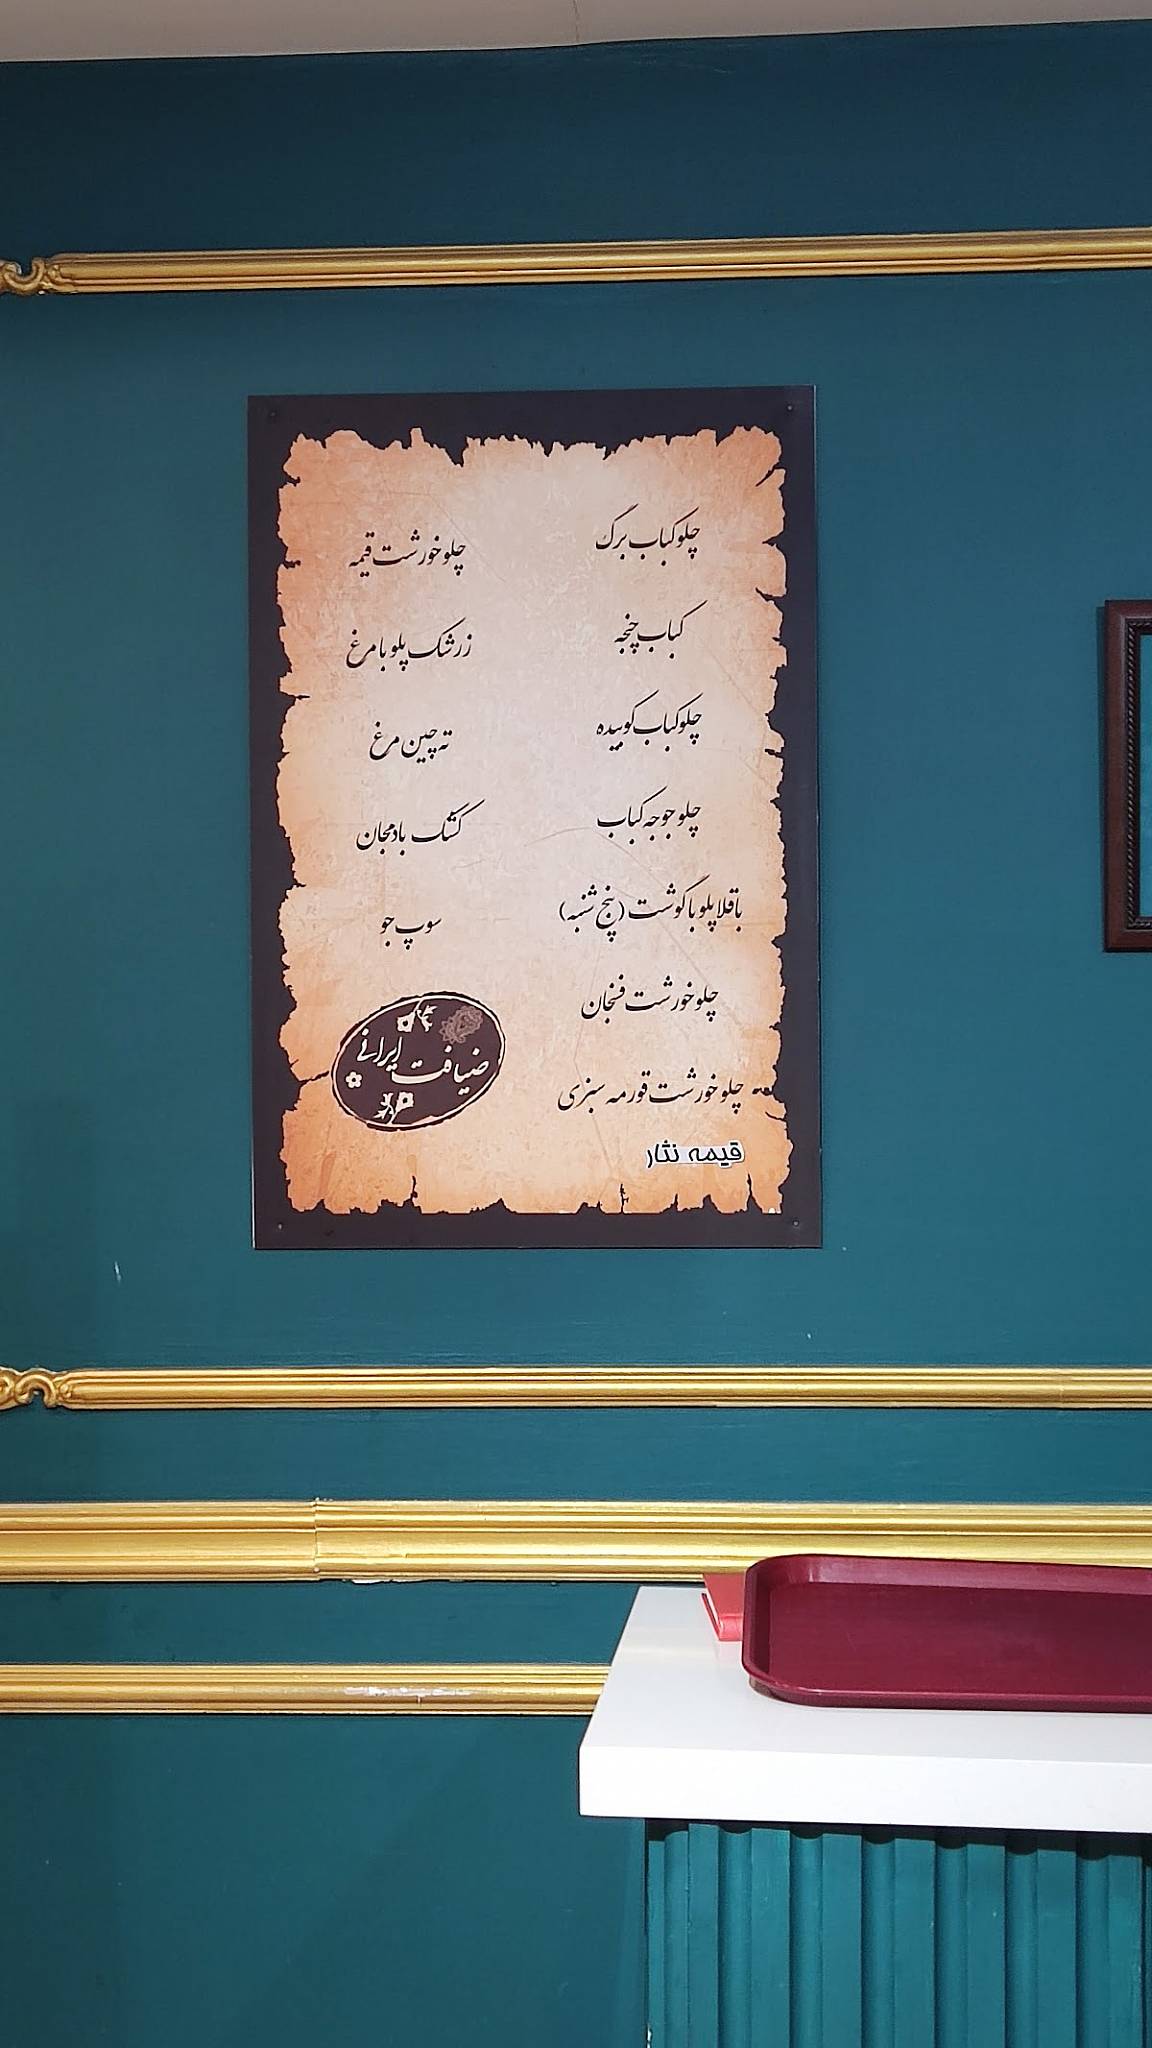 چلوکباب برگ
کباب چنجه
چلوکباب کوبیده
چلو جوجه کباب
باقلا پلو با گوشت (پنج شنبه)
چلو خورشت فسنجان
چلو خورشت قورمه سبزی
قیمه نثار
چلو خورشت قیمه
زرشک پلو با مرغ
ته چین مرغ
کشک بادمجان
سوپ جو
ضیافت ایرانی